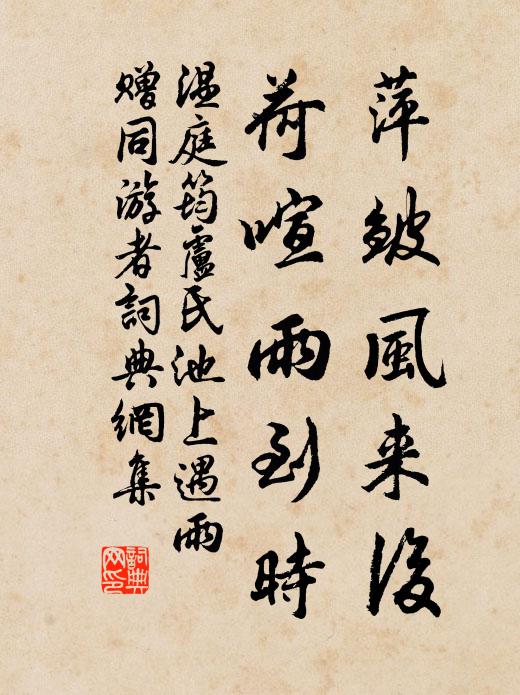 萍皱風来後
荷喧雨到時
温庭筠盧氏池上遇雨
贈同游者詞典網集
詞典網印